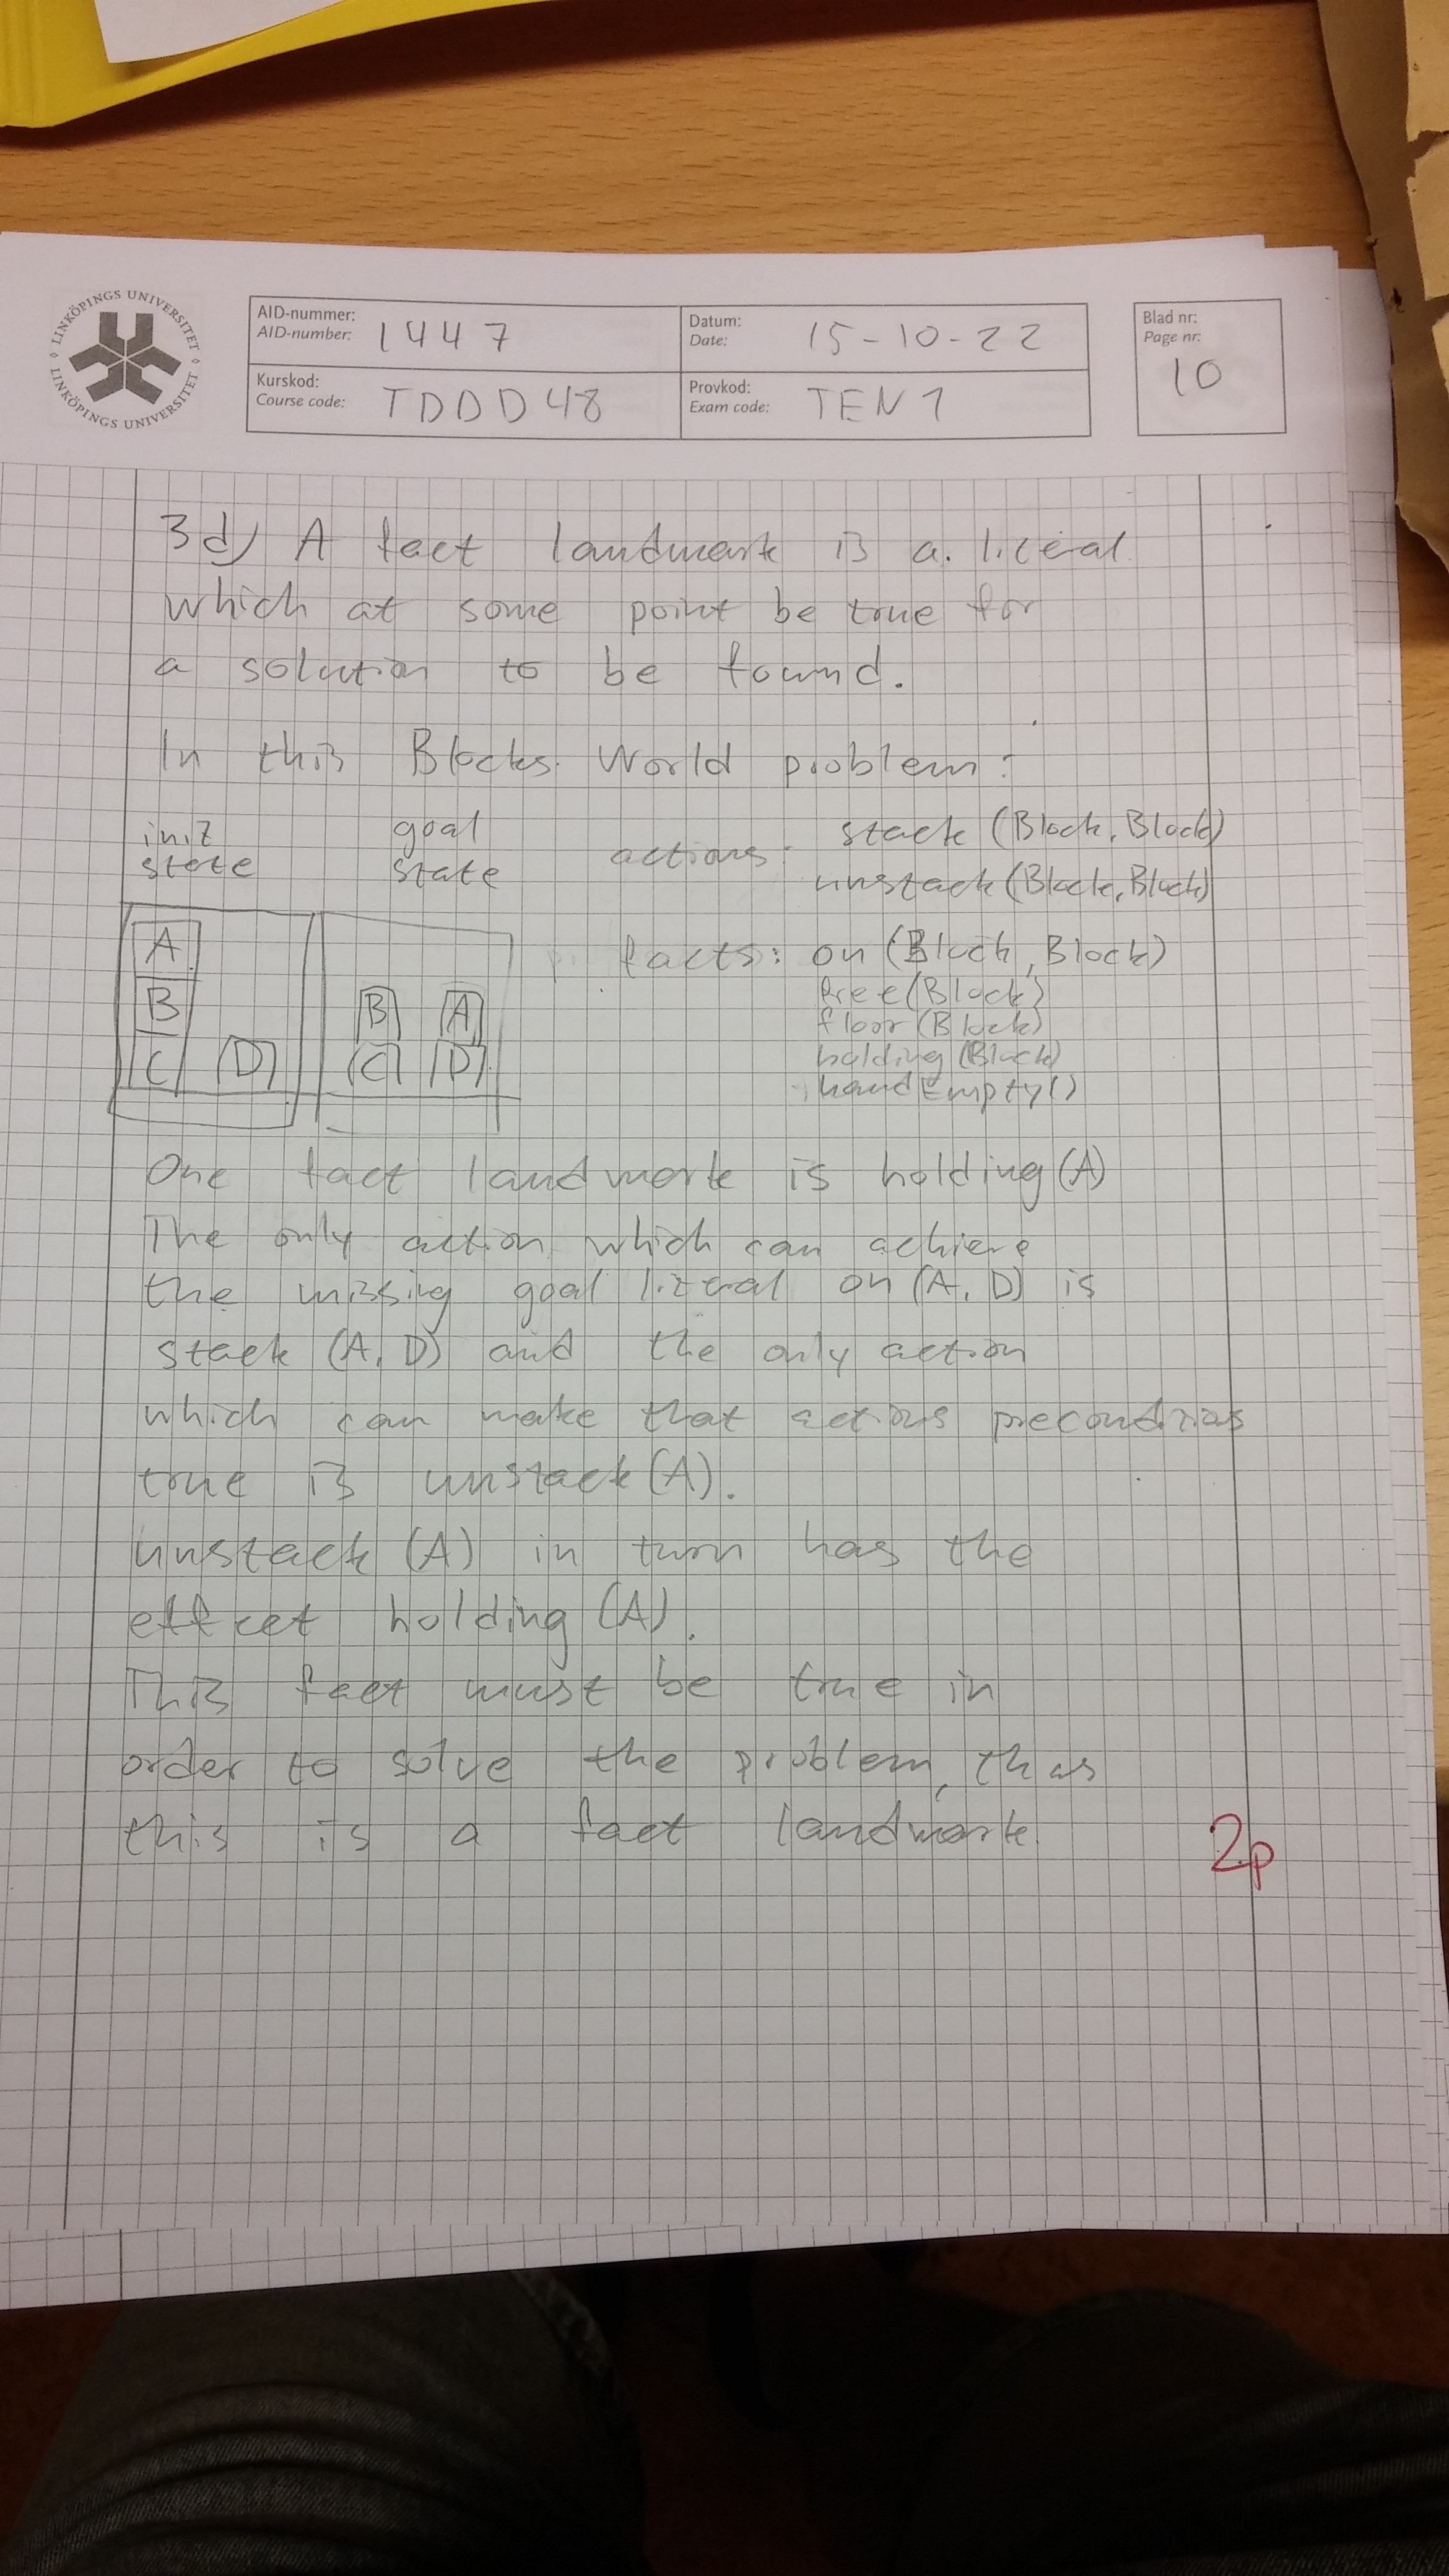 LINKÖPINGS UNIVERSITET
LINKÖPINGS UNIVERSITET
AID-nummer:
AID-number: 1447
Datum:
Date: 15-10-22
Blad nr:
Page nr:
10
Kurskod:
Course code: TDDD48
Provkod:
Exam code: TEN1
3d) A fact landmark is a literal
which at some point be true for
a solution to be found.
In this Blocks World problem:
init
state
goal
state
actions: stack (Block, Block)
unstack (Block, Block)
facts: on (Block, Block)
free (Block)
floor (Block)
holding (Block)
handEmpty()
A
B
C D
B A
C D
One fact landmark is holding (A)
The only action which can achieve
the missing goal literal on (A, D) is
stack (A, D) and the only action
which can make that actions preconditions
true is unstack (A).
unstack (A) in turn has the
effect holding (A).
This fact must be true in
order to solve the problem, thus
this is a fact landmark.
2p